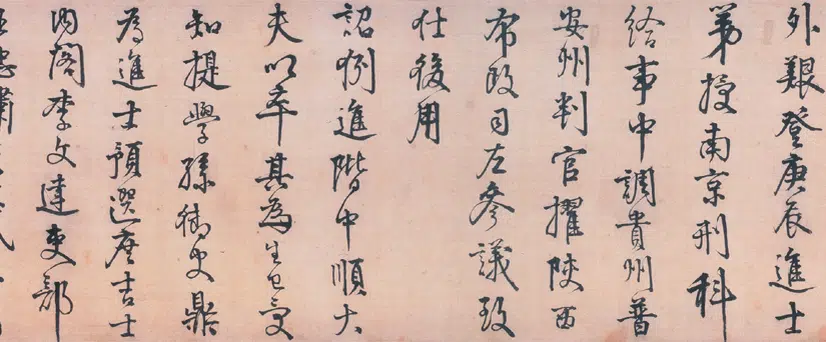 外艱登庚辰進士
第授南京刑科
給事中調貴州普
安州判官擢陝西
布政司左參議致
仕後用
詔例進階中順大
夫以卒其為生也受
知提學孫御史鼎
為進士預選庶吉士
內閣李文達吏部
忠肅